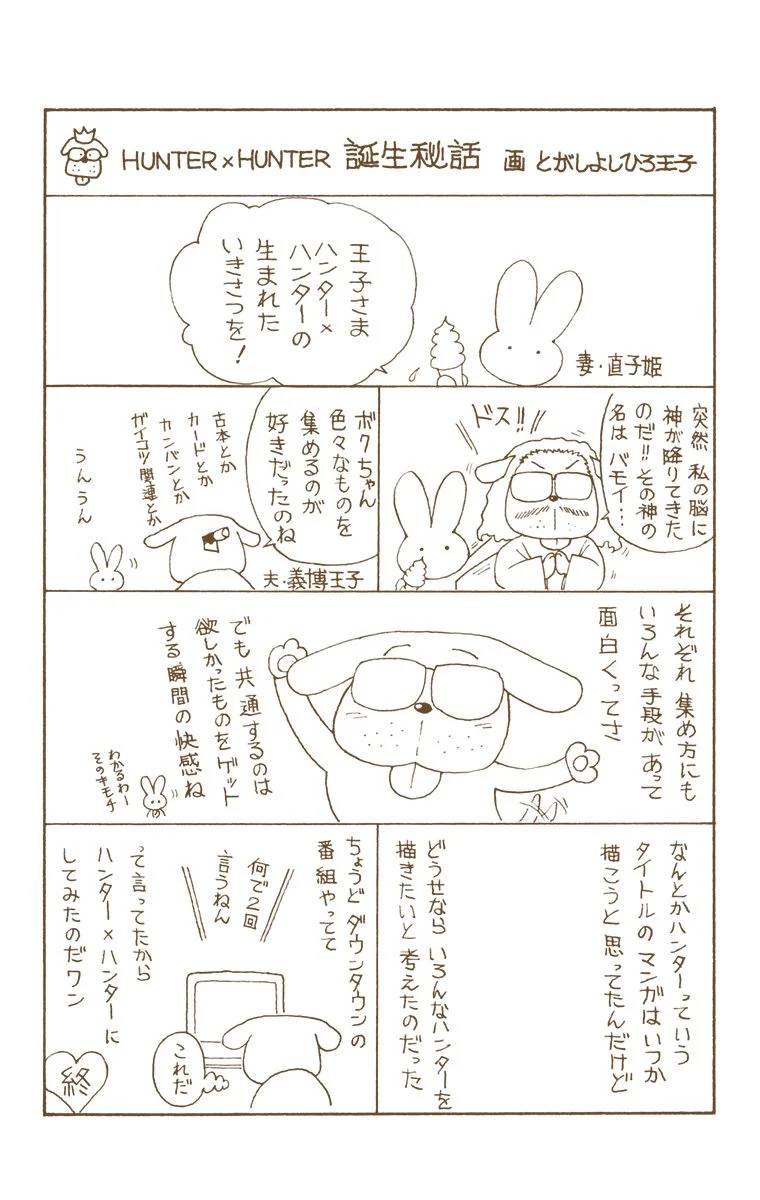 HUNTER×HUNTER 誕生秘話 画 とがしよしひろ王子
王子さま
ハンター×
ハンターの
生まれた
いきさつを!
妻・直子姫
突然 私の脳に
神が降りてきた
のだ!! その神の
名は バモイ…
ドス!!
ボクちゃん
色々なものを
集めるのが
好きだったのね
夫・義博王子
古本とか
カードとか
カンバンとか
ガイコツ関連とか
うんうん
それぞれ 集め方にも
いろんな 手段が あって
面白くってさ
でも 共通するのは
欲しかったものをゲット
する 瞬間の 快感ね
わかるわー
そのキモチ
なんとかハンターっていう
タイトルの マンガは いつか
描こうと 思ってたんだけど
どうせなら いろんなハンターを
描きたいと 考えたのだった
ちょうど ダウンタウンの
番組やってて
何で2回
言うねん
って 言ってたから
ハンター×ハンターに
してみたのだワン
これだ
終